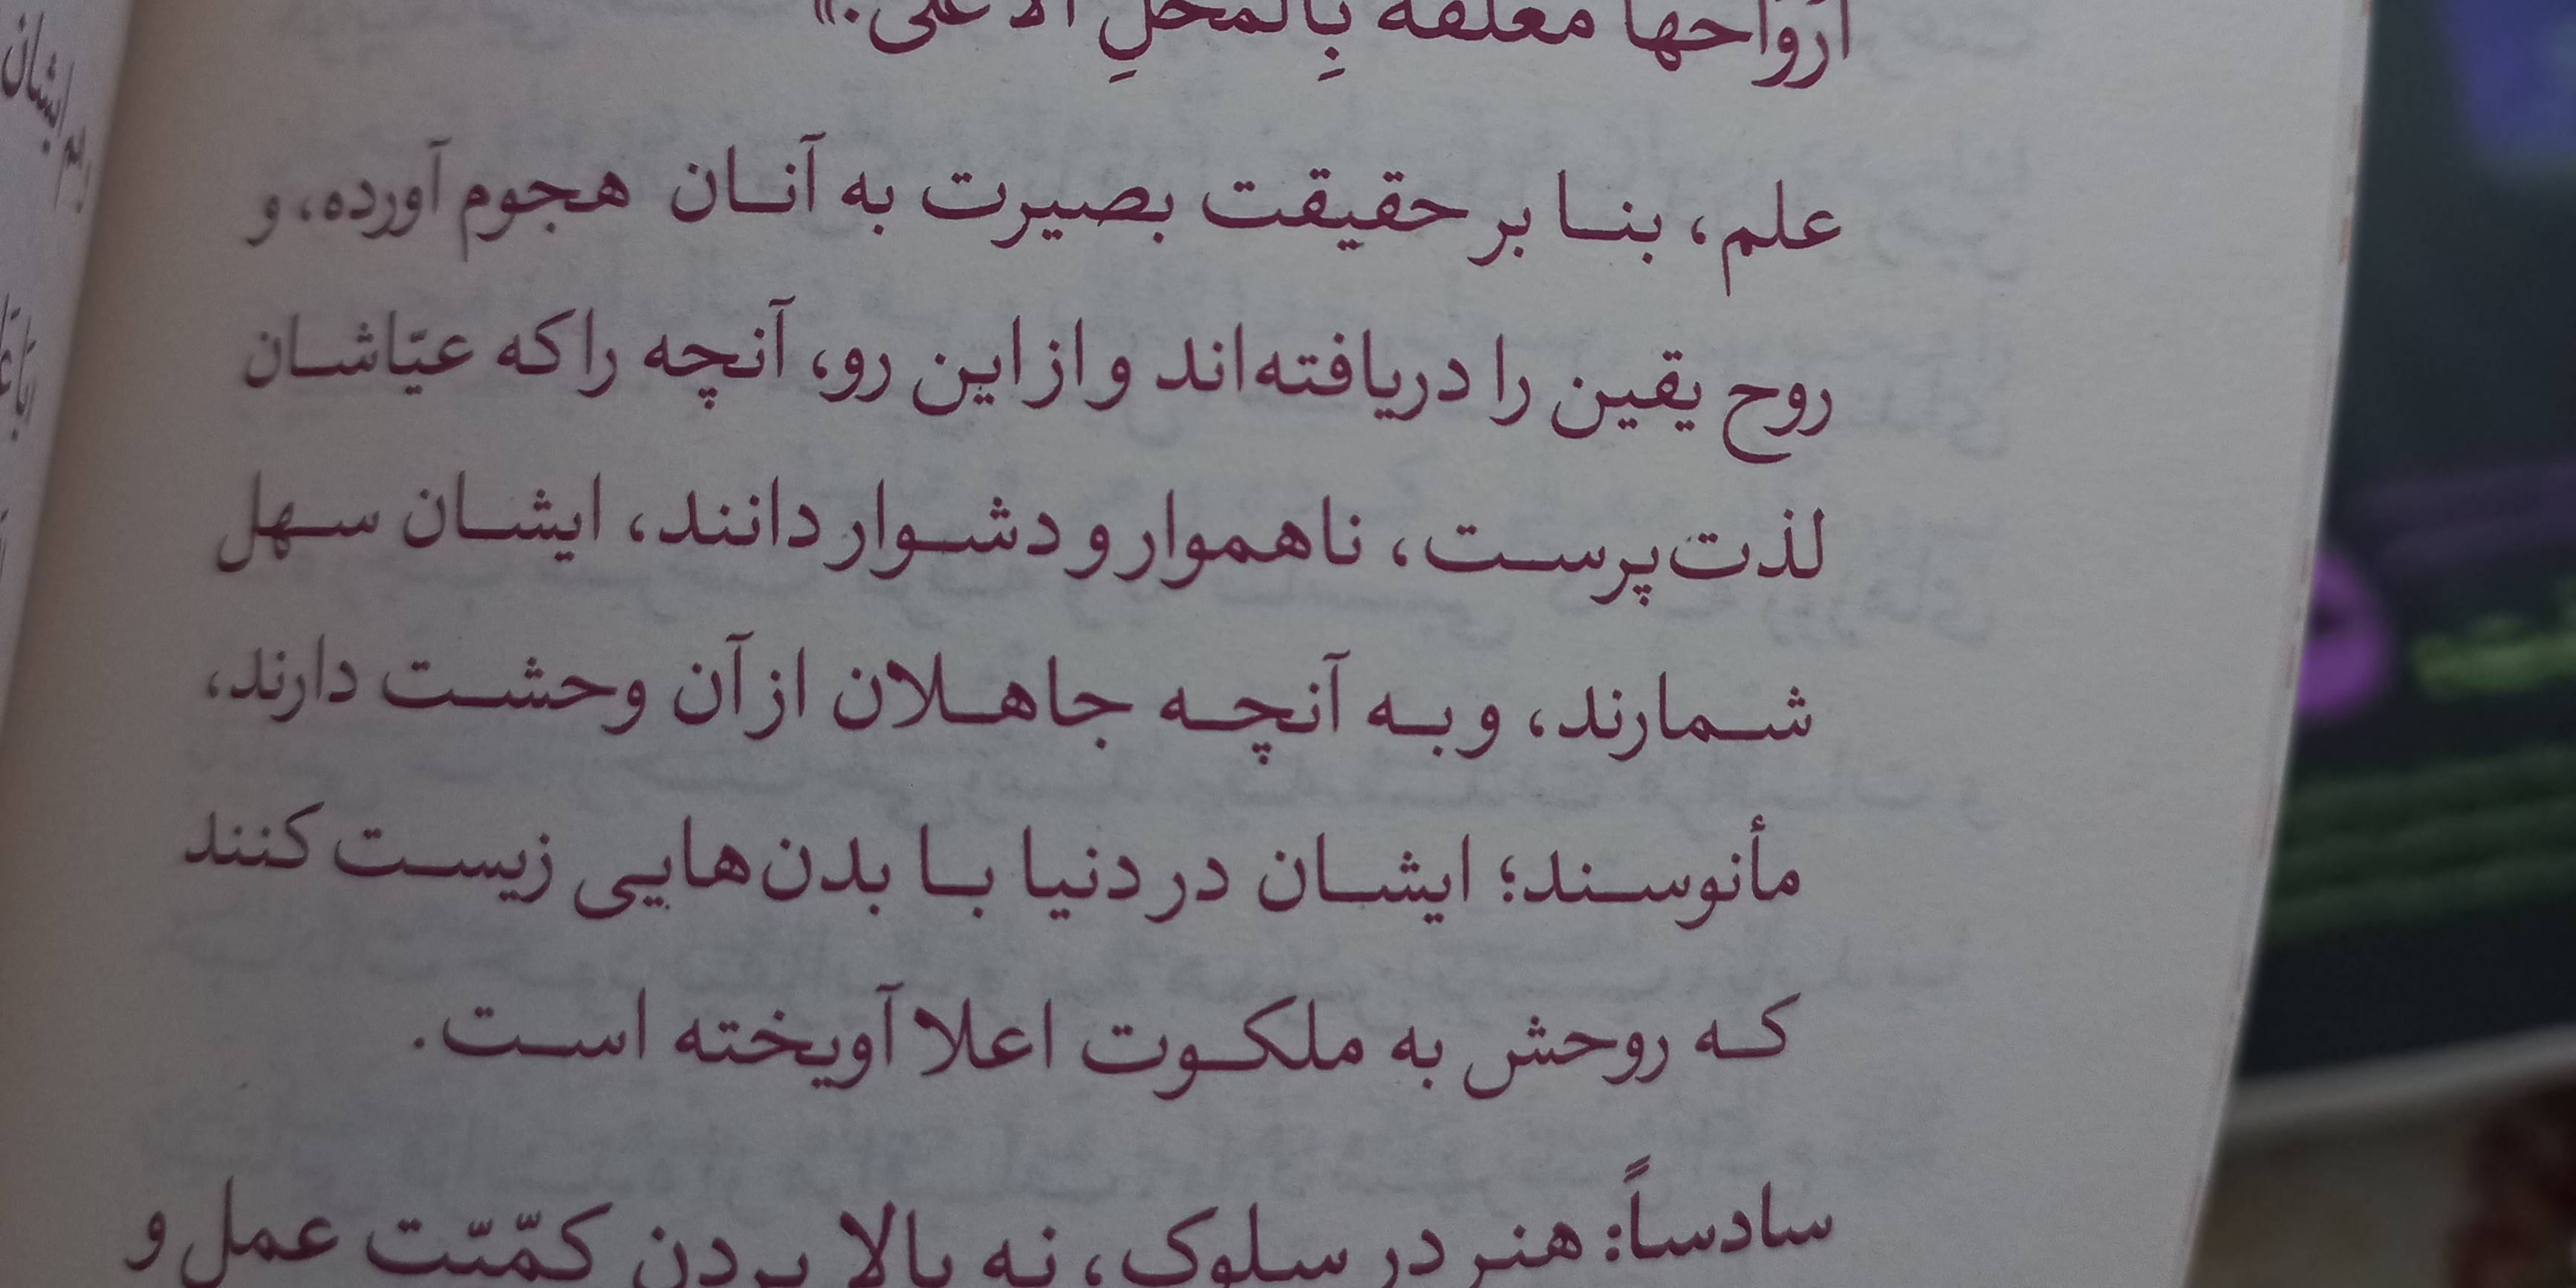 أرْوَاحها معلقة بِالمَحَلِ الأعلى.»
علم، بنا بر حقیقت بصیرت به آنان هجوم آورده، و
روح یقین را دریافته‌اند و از این رو، آنچه را که عیّاشان
لذت‌پرست، ناهموار و دشوار دانند، ایشان سهل
شمارند، و به آنچه جاهلان از آن وحشت دارند،
مأنوسند؛ ایشان در دنیا با بدن‌هایی زیست کنند
که روحش به ملکوت اعلا آویخته است.
سادساً: هنر در سلوک، نه بالا بردن کمّیّت عمل و